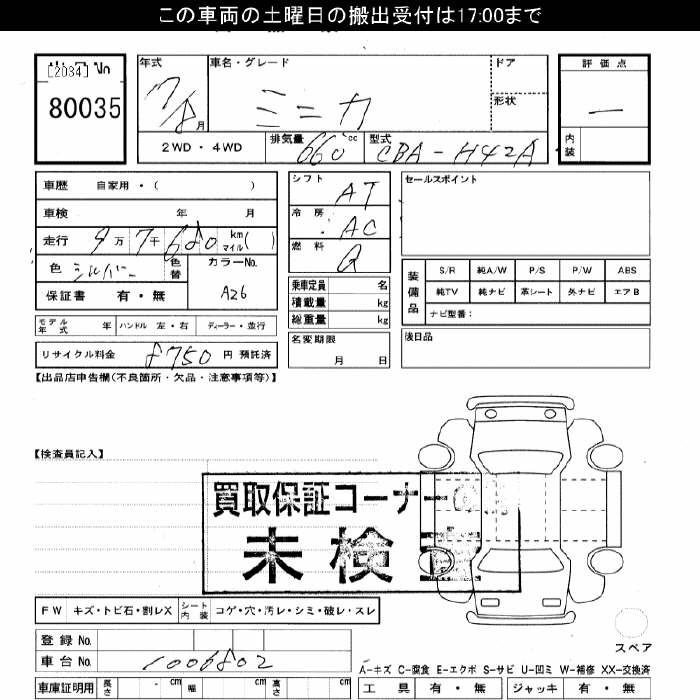 この車両の土曜日の搬出受付は17:00まで
[2034] No
80035
年式
17/8月
車名・グレード
ミニカ
ドア
形状
評価点
—
内装
2WD・4WD
排気量 660 cc
型式 CBA-H42A
車歴 自家用・( )
車検 年 月
走行 9万7千680 km マイル( )
色 シルバー 色替
カラーNo. A26
保証書 有・無
モデル年式 年 ハンドル 左・右 ディーラー・並行
リサイクル料金 8750 円 預託済
シフト AT
冷房 AC
燃料 G
乗車定員 名
積載量 kg
総重量 kg
名変期限
月 日
セールスポイント
装備品
S/R 純A/W P/S P/W ABS
純TV 純ナビ 革シート 外ナビ エアB
ナビ型番：
後日品
【出品店申告欄(不良箇所・欠品・注意事項等)】
【検査員記入】
買取保証コーナー
未検
FW キズ・トビ石・割レX シート内装 コゲ・穴・汚レ・シミ・破レ・スレ
登録 No.
車台 No. 1006802
車庫証明用 長さ cm 幅 cm 高さ cm
スペア
A-キズ C-腐食 E-エクボ S-サビ U-凹ミ W-補修 XX-交換済
工具 有・無 ジャッキ 有・無